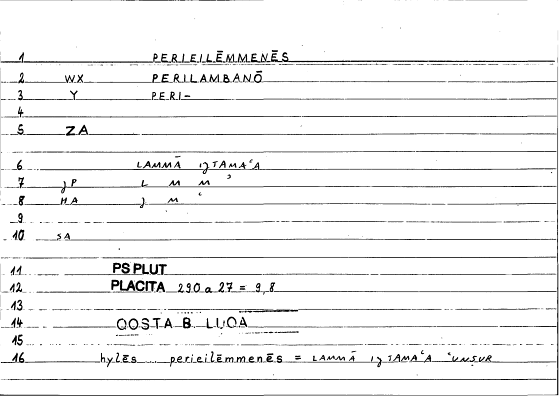 1 PERIEILĒMMENĒS
2 WX PERILAMBANŌ
3 Y PERI-
4
5 ZA
6 LAMMĀ IJTAMAʿA
7 JP L M M ʾ
8 HA J M ʿ
9
10 SA
11 PS PLUT
12 PLACITA 290 a 27 = 9,8
13
14 QOSTA B. LUQA
15
16 hylēs perieilēmmenēs = LAMMĀ IJTAMAʿA ʿUNṢUR